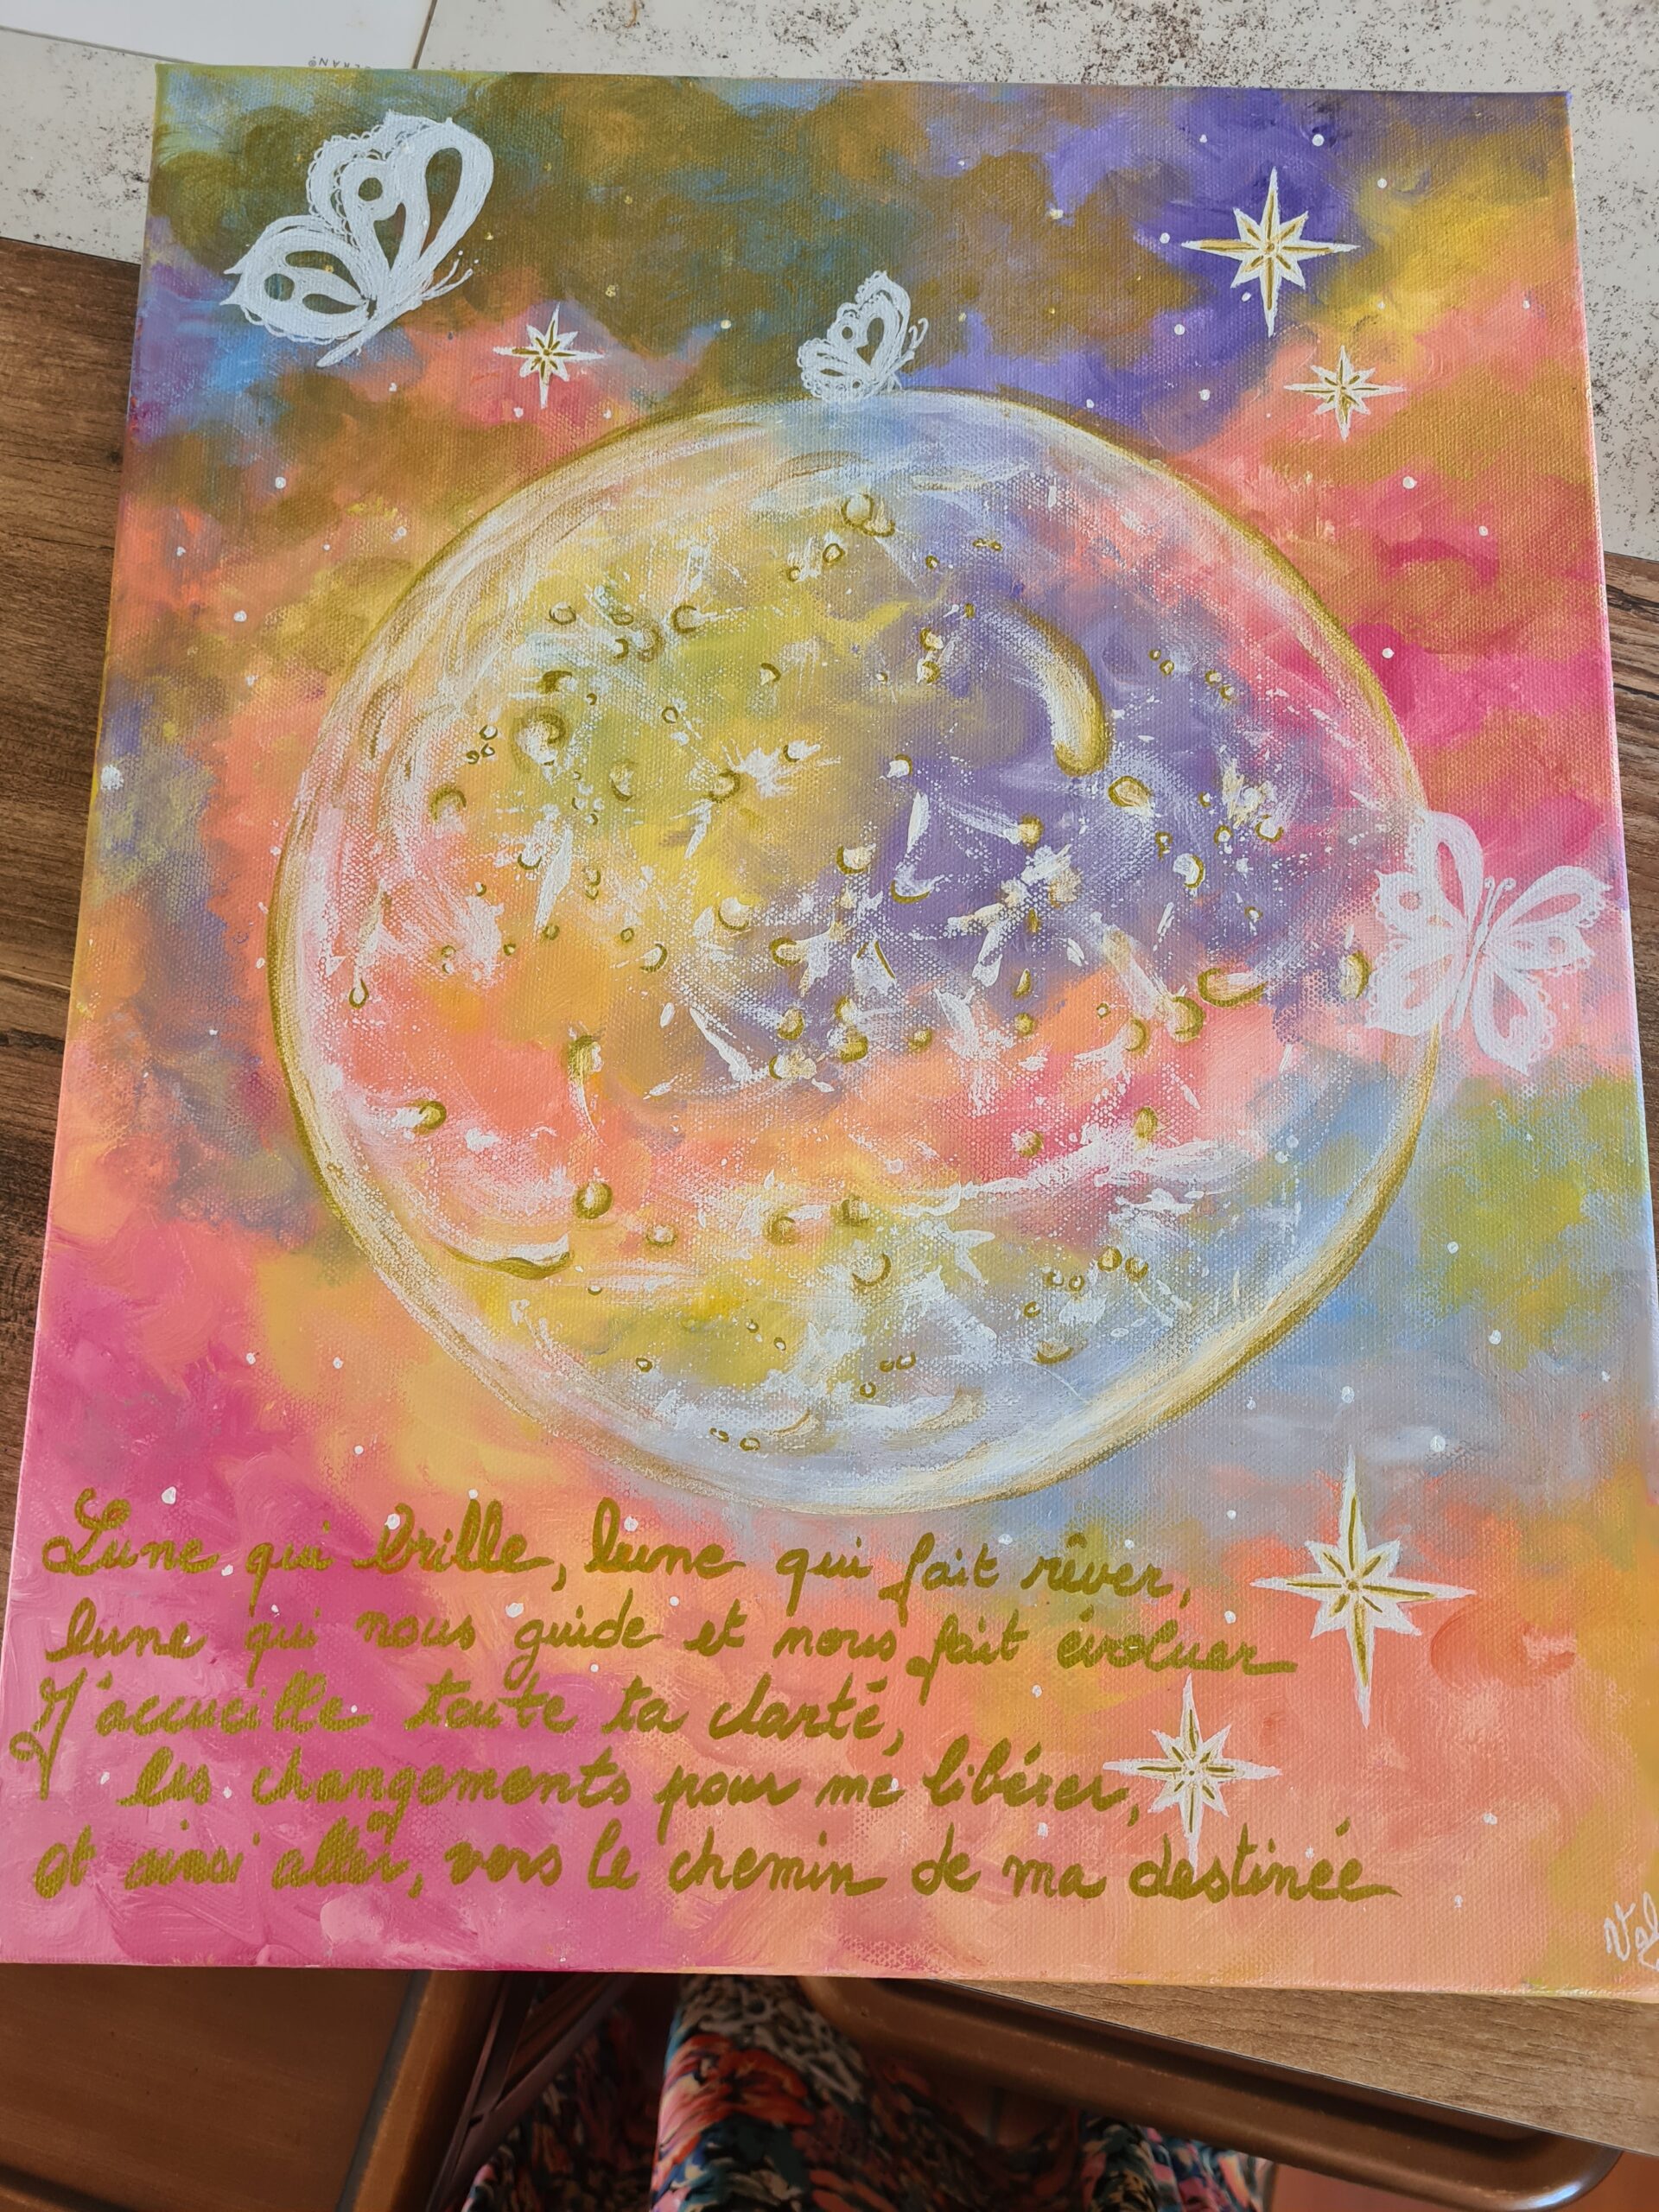 Lune qui brille, lune qui fait rêver,
lune qui nous guide et nous fait évoluer
J'accueille toute ta clarté,
les changements pour me libérer,
et ainsi aller, vers le chemin de ma destinée